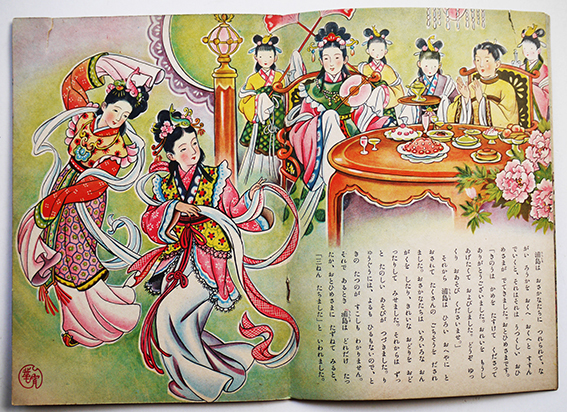 浦島は おさかなたちに つれられて、な
がい ろうかを おくへ おくへと すすん
でいくと、それは それは うつくしい おひ
めさまが、まっていました。おとひめさまです。
「きのうは かめを たすけて くださって
ありがとうございました。おれいを もうし
あげたくて およびしました。どうぞ ゆっ
くり おあそび くださいませ。」
それから 浦島は ひろい おへやに と
おされて たくさんの ごちそうを だされ
ました。おさかなたちは、いろいろな おん
がくを したり、きれいな おどりを おど
ったりして みせました。それからは ずっ
と たのしい あそびが つづきました。り
ゅうぐうには、よるも ひるもないので、と
きの たつのが すこしも わかりません。
それで あるとき 浦島は どれだけ たっ
たか、おとひめさまに たずねて みると、
「三ねん たちました」と いわれました。